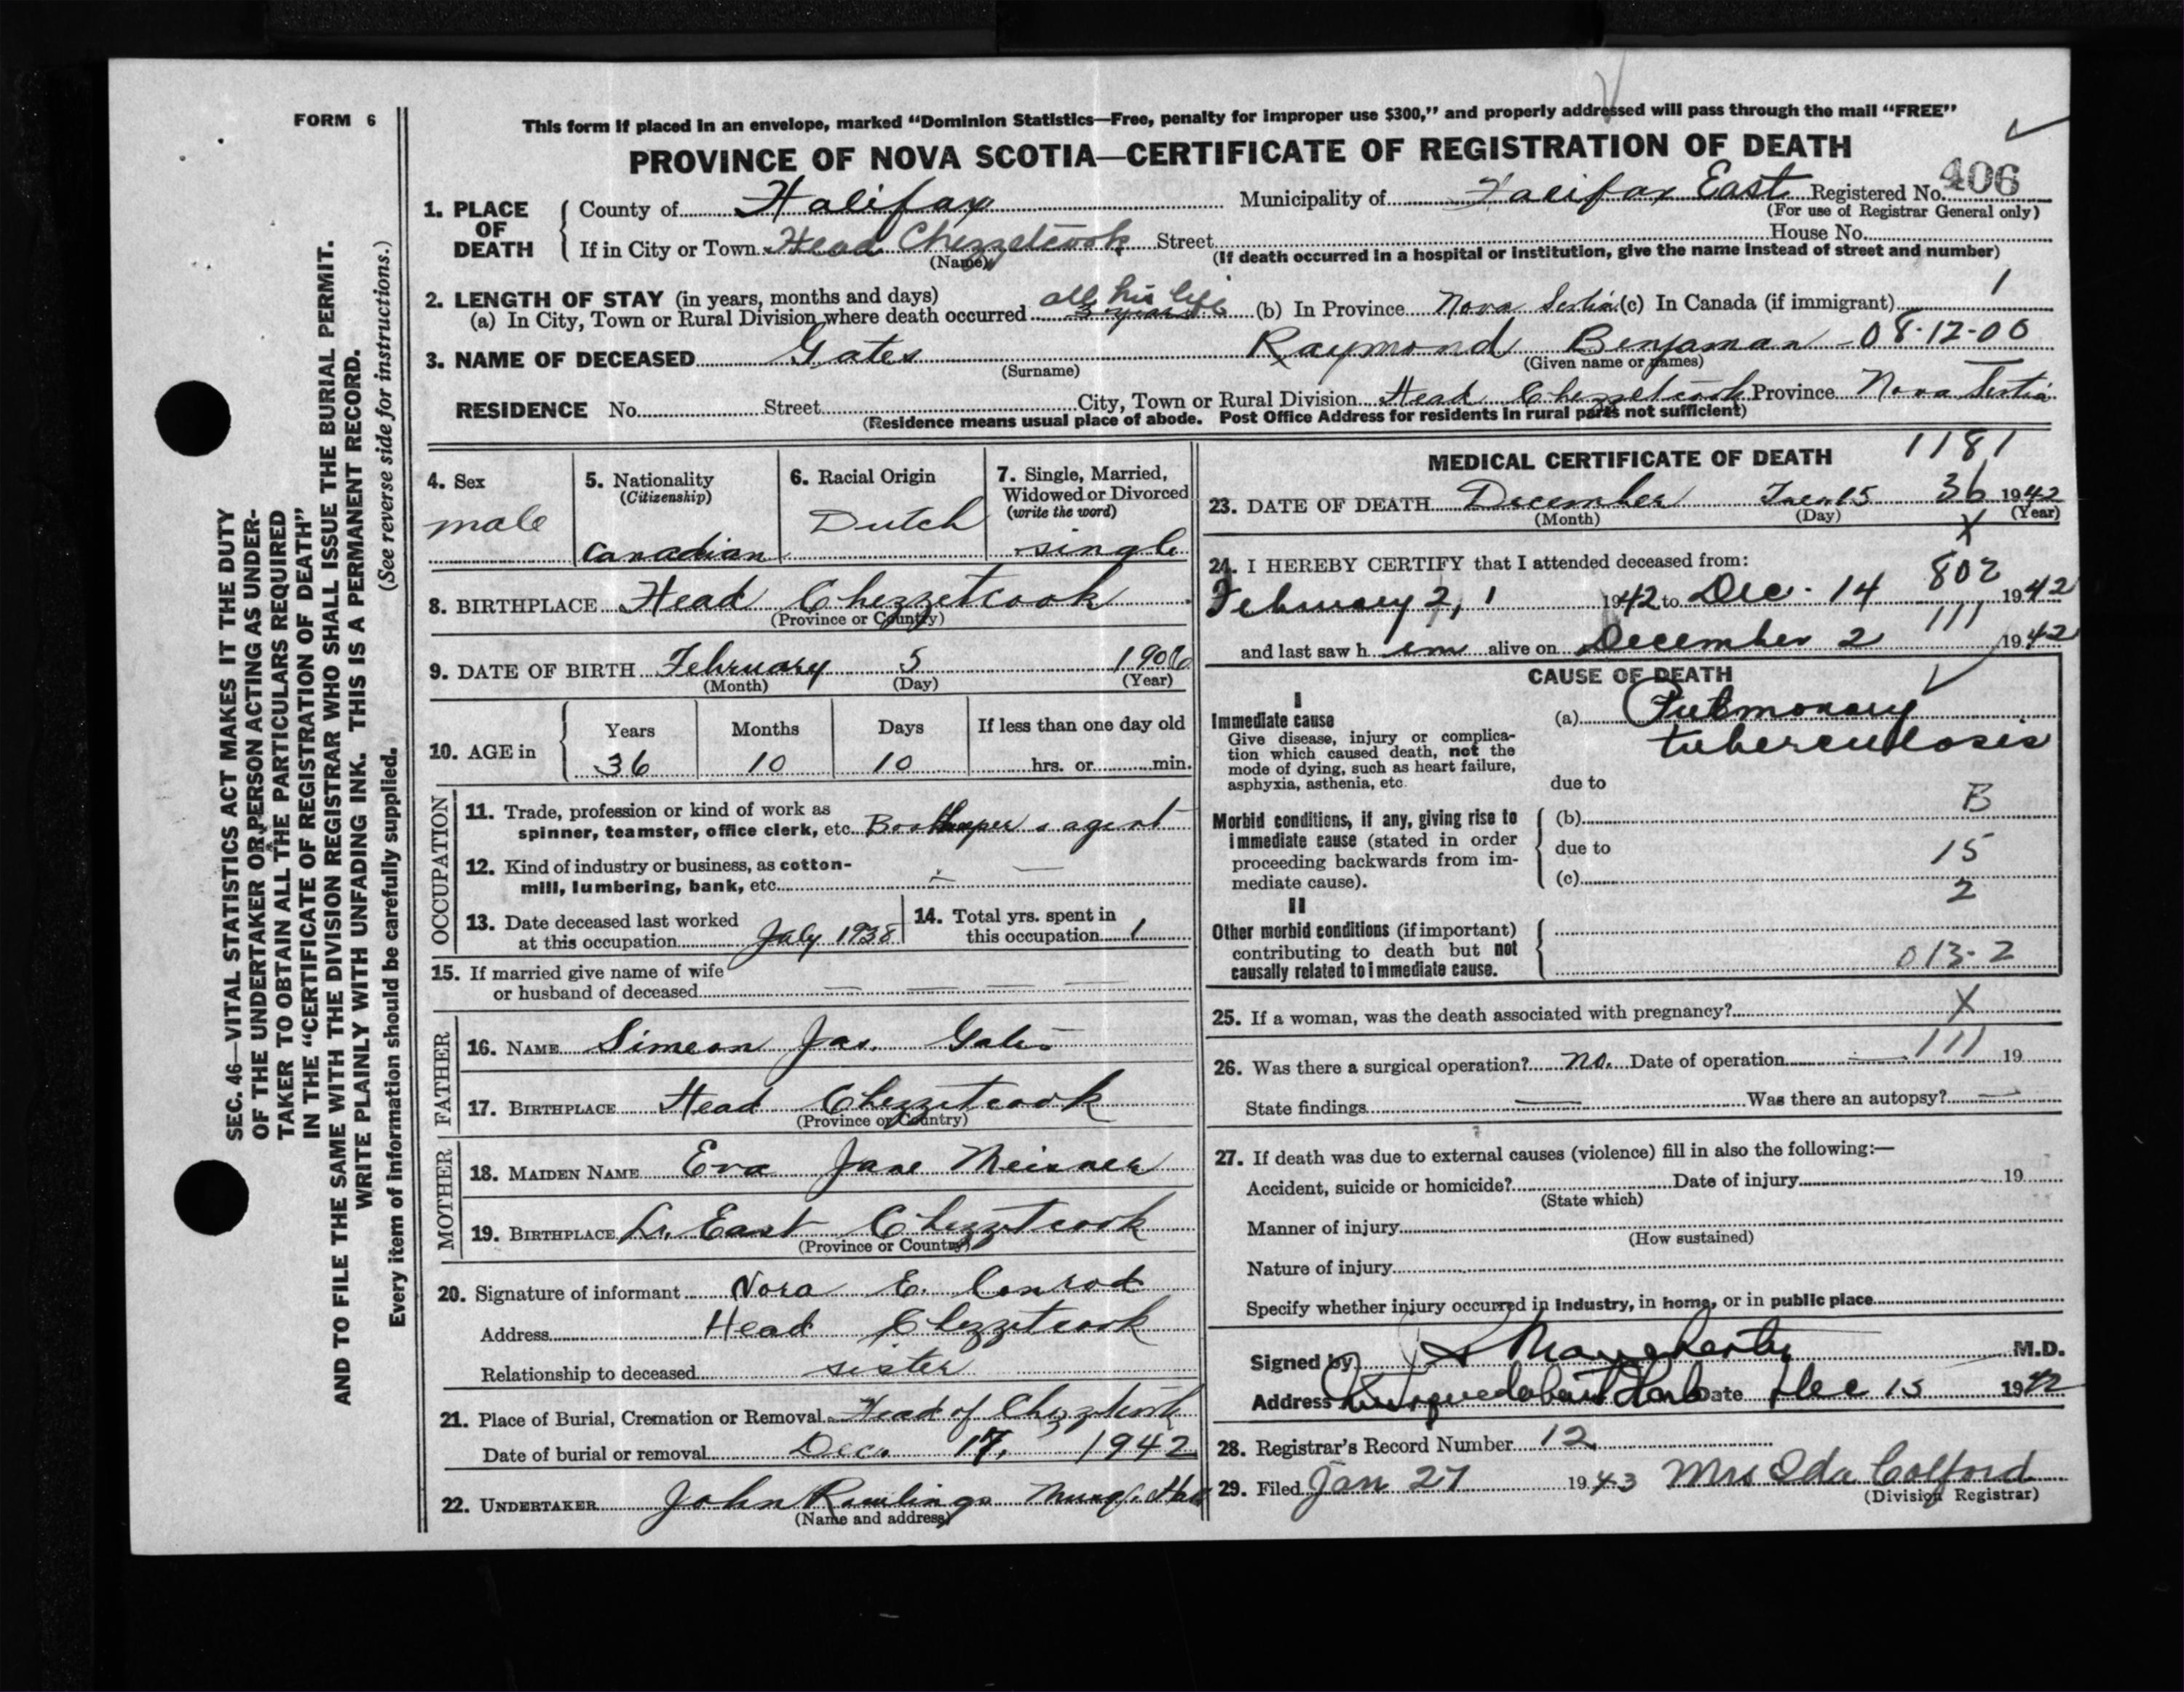 FORM 6
This form if placed in an envelope, marked "Dominion Statistics—Free, penalty for improper use $300," and properly addressed will pass through the mail "FREE"
PROVINCE OF NOVA SCOTIA—CERTIFICATE OF REGISTRATION OF DEATH
1. PLACE OF DEATH County of Halifax Municipality of Halifax East Registered No. 406
(For use of Registrar General only)
If in City or Town Head Chezzetcook Street House No.
(Name) (If death occurred in a hospital or institution, give the name instead of street and number)
2. LENGTH OF STAY (in years, months and days)
(a) In City, Town or Rural Division where death occurred all his life 3 years (b) In Province Nova Scotia (c) In Canada (if immigrant) 1
3. NAME OF DECEASED Gates Raymond Benjaman - 08-12-06
(Surname) (Given name or names)
RESIDENCE No. Street City, Town or Rural Division Head Chezzetcook Province Nova Scotia
(Residence means usual place of abode. Post Office Address for residents in rural parts not sufficient)
4. Sex male
5. Nationality (Citizenship) Canadian
6. Racial Origin Dutch
7. Single, Married, Widowed or Divorced (write the word) single
8. BIRTHPLACE Head Chezzetcook
(Province or Country)
9. DATE OF BIRTH February 5 1906
(Month) (Day) (Year)
10. AGE in Years 36 Months 10 Days 10 If less than one day old hrs. or min.
OCCUPATION
11. Trade, profession or kind of work as
spinner, teamster, office clerk, etc. Bookkeeper & agent
12. Kind of industry or business, as cotton-
mill, lumbering, bank, etc.
13. Date deceased last worked
at this occupation July 1938
14. Total yrs. spent in
this occupation 1
15. If married give name of wife
or husband of deceased
FATHER
16. NAME Simeon Jas. Gates
17. BIRTHPLACE Head Chezzetcook
(Province or Country)
MOTHER
18. MAIDEN NAME Eva Jane Meisner
19. BIRTHPLACE Lr. East Chezzetcook
(Province or Country)
20. Signature of informant Nora E. Conrod
Address Head Chezzetcook
Relationship to deceased sister
21. Place of Burial, Cremation or Removal Head of Chezzetcook
Date of burial or removal Dec. 17, 1942
22. UNDERTAKER John Rawlings Musq. Hbr
(Name and address)
MEDICAL CERTIFICATE OF DEATH 1181
23. DATE OF DEATH December 15 36 1942
(Month) (Day) (Year)
X
24. I HEREBY CERTIFY that I attended deceased from: 802
February 2, 1942 to Dec. 14 1942
111
and last saw him alive on December 2 1942
CAUSE OF DEATH
I
Immediate cause
Give disease, injury or complica-
tion which caused death, not the
mode of dying, such as heart failure,
asphyxia, asthenia, etc.
(a) Pulmonary
tuberculosis
due to
Morbid conditions, if any, giving rise to
immediate cause (stated in order
proceeding backwards from im-
mediate cause).
(b) B
due to 15
(c) 2
II
Other morbid conditions (if important)
contributing to death but not
causally related to immediate cause.
013-2
25. If a woman, was the death associated with pregnancy? X
26. Was there a surgical operation? no. Date of operation 111 19
State findings Was there an autopsy?
27. If death was due to external causes (violence) fill in also the following:—
Accident, suicide or homicide? Date of injury 19
(State which)
Manner of injury
(How sustained)
Nature of injury
Specify whether injury occurred in industry, in home, or in public place
Signed by M.D.
Address Musquodoboit Harb Date Dec 15 1942
28. Registrar's Record Number 12
29. Filed Jan 27 1943 Mrs Ida Colford
(Division Registrar)
SEC. 46—VITAL STATISTICS ACT MAKES IT THE DUTY
OF THE UNDERTAKER OR PERSON ACTING AS UNDER-
TAKER TO OBTAIN ALL THE PARTICULARS REQUIRED
IN THE "CERTIFICATE OF REGISTRATION OF DEATH"
AND TO FILE THE SAME WITH THE DIVISION REGISTRAR WHO SHALL ISSUE THE BURIAL PERMIT.
WRITE PLAINLY WITH UNFADING INK. THIS IS A PERMANENT RECORD.
(See reverse side for instructions.)
Every item of information should be carefully supplied.